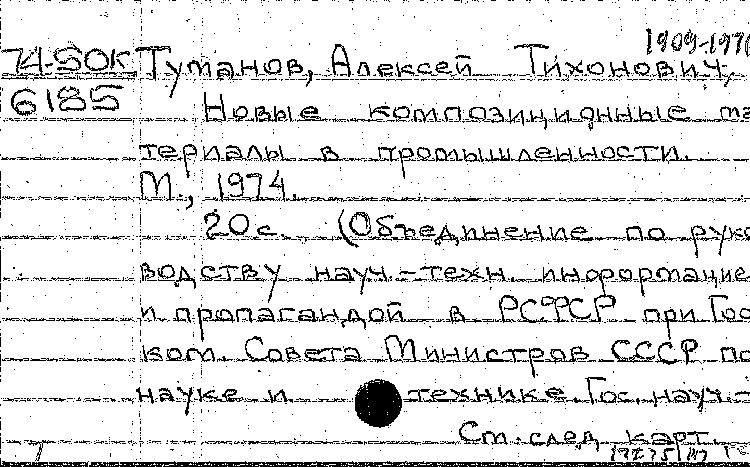 1909-1970
74-SOK Туманов, Алексей Тихонович.
6185 Новые композиционные ма
териалы в промышленности.
М., 1974.
20 с. (Объединение по руко
водству науч.-техн. информацией
и пропагандой в РСФСР при Гос
ком. Совета Министров СССР по
науке и технике. Гос. науч.-
См. след. карт.